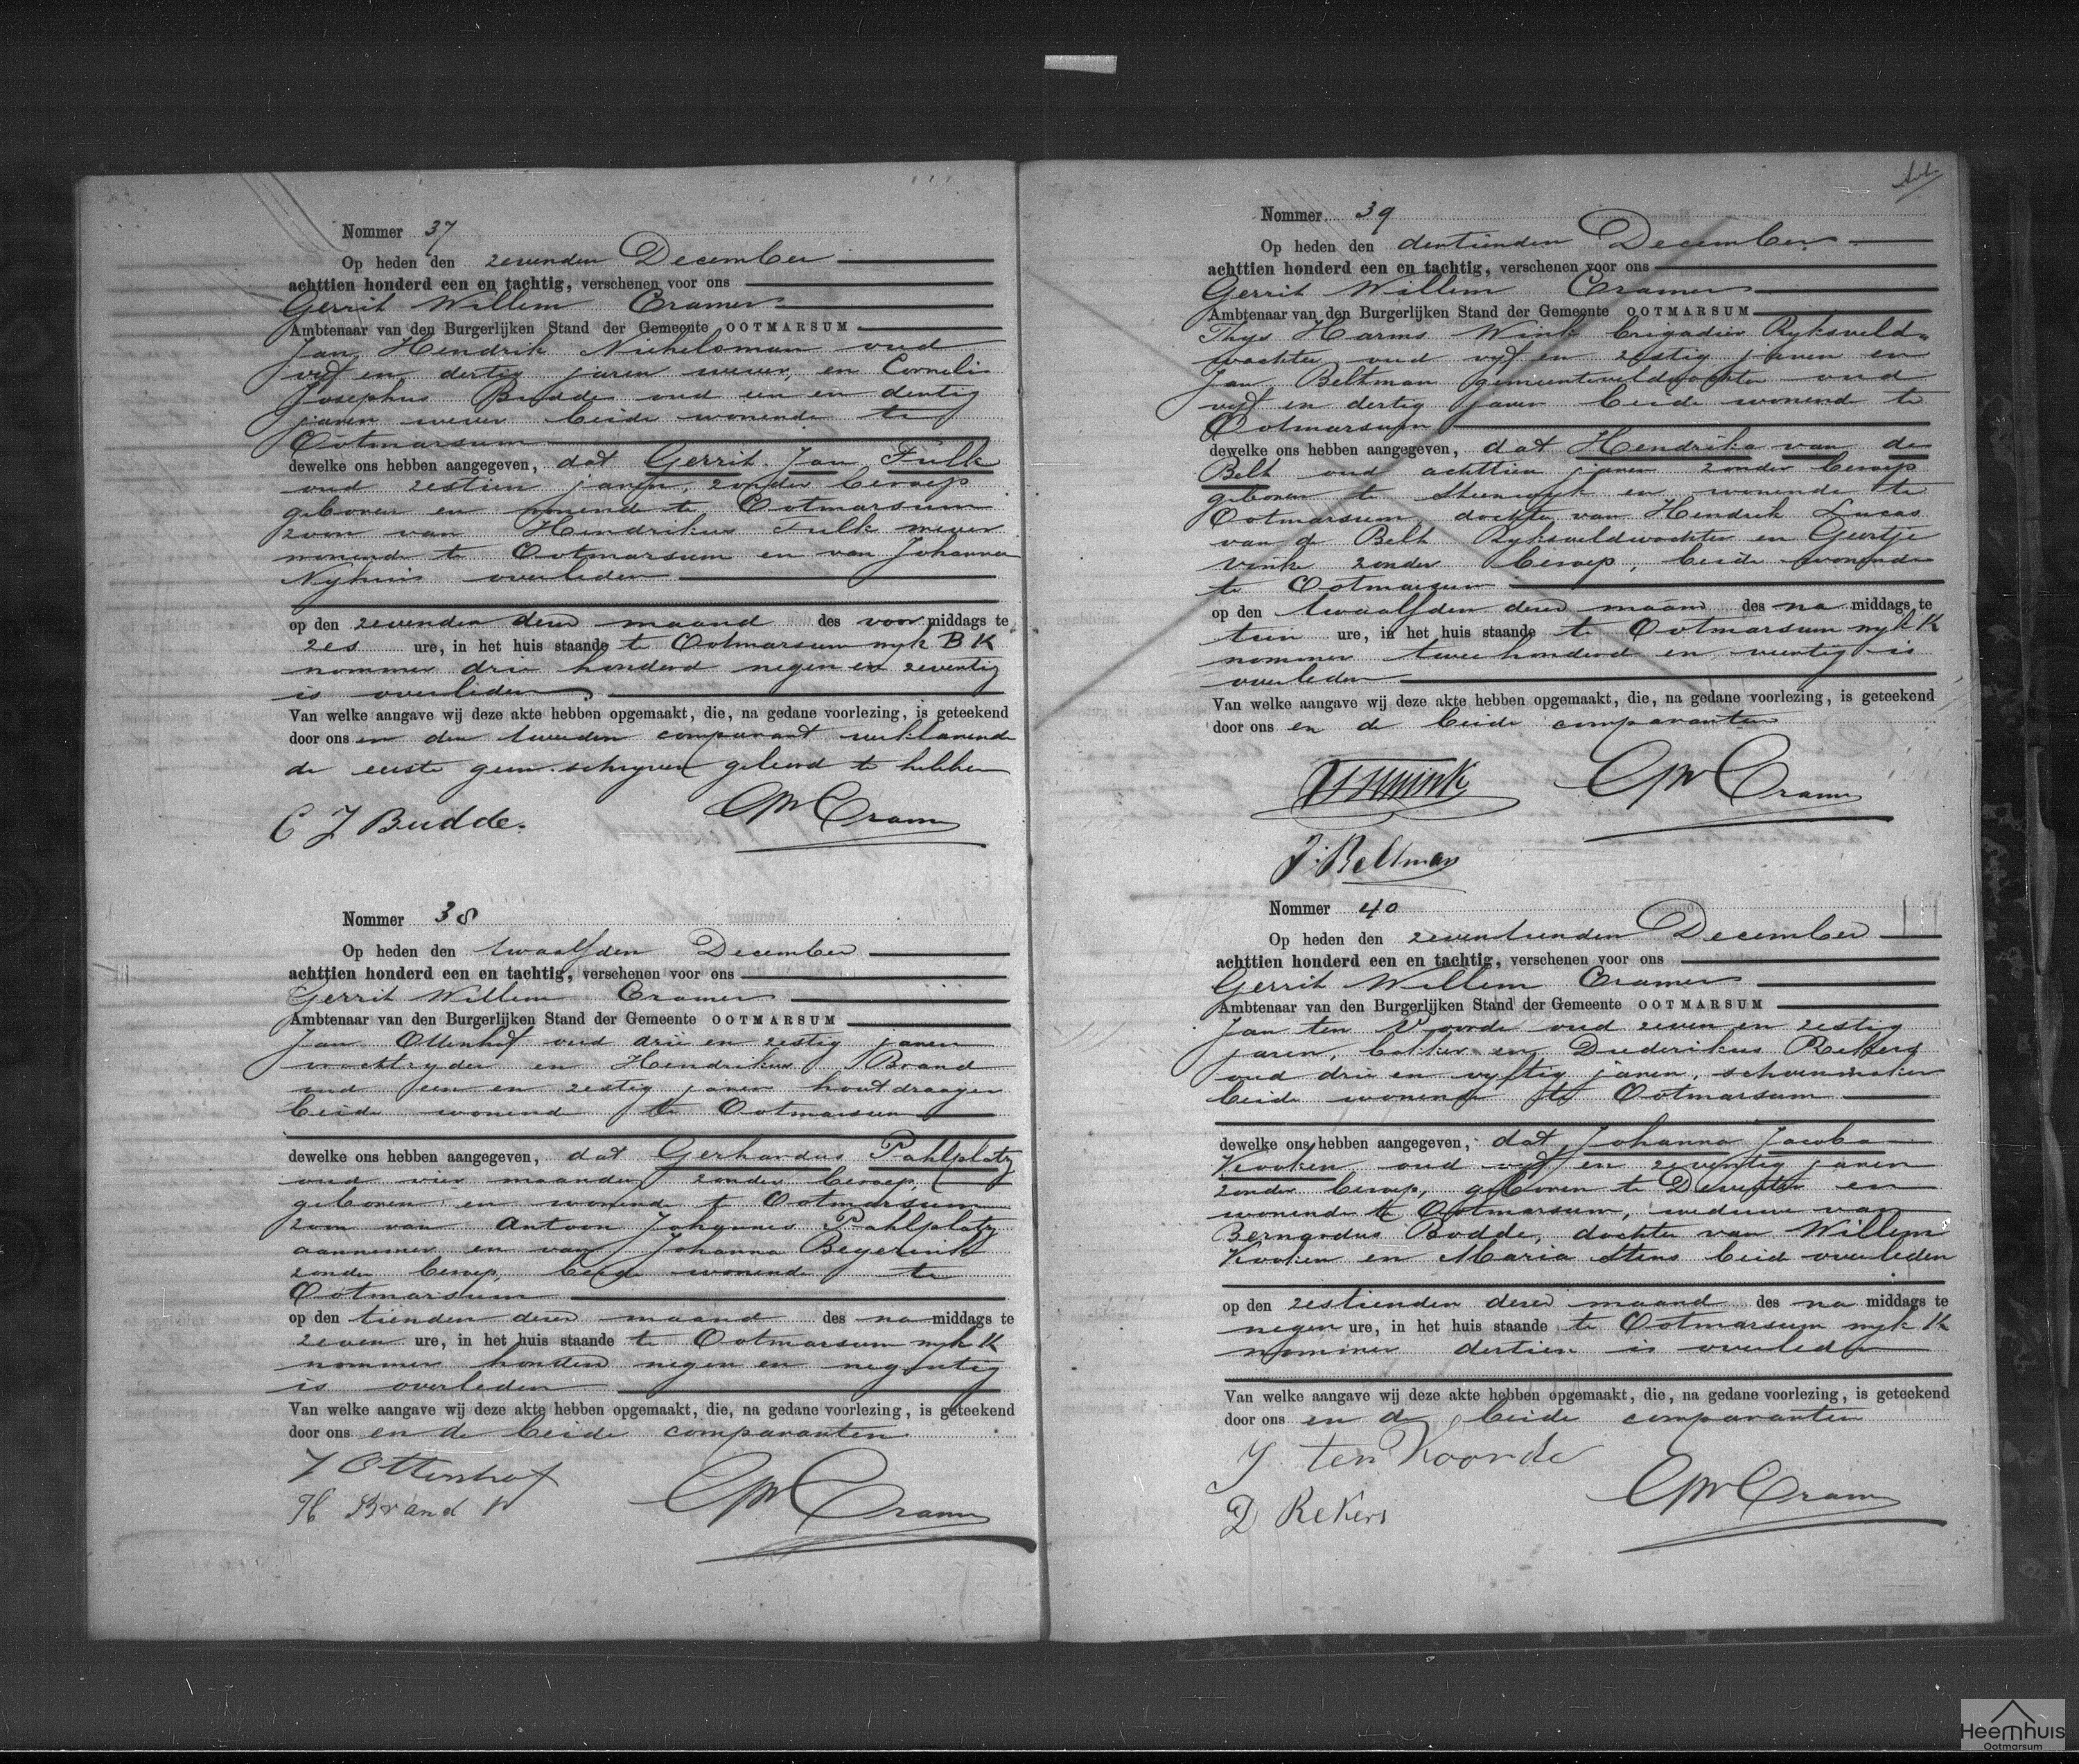 Nommer 37
Op heden den zevenden December
achttien honderd een en tachtig, verschenen voor ons
Gerrit Willem Cramer
Ambtenaar van den Burgerlijken Stand der Gemeente OOTMARSUM
Jan Hendrik Nickelsman oud
vijf en dertig jaren wever, en Cornelis
Josephus Budde oud een en dertig
jaren wever beide wonende te
Ootmarsum
dewelke ons hebben aangegeven, dat Gerrit Jan Fulk
oud zestien jaren, zonder beroep
geboren en wonende te Ootmarsum
zoon van Hendrikus Fulk wever
wonende te Ootmarsum en van Johanna
overleden
op den zevenden dezer maand des voor middags te
zes ure, in het huis staande te Ootmarsum wyk B K
nommer drie honderd negen en zeventig
is overleden
Van welke aangave wij deze akte hebben opgemaakt, die, na gedane voorlezing, is geteekend
door ons en den tweeden comparant verklarende
de eerste geen schryven geleerd te hebben
C J Budde. GW Cramer
Nommer 38
Op heden den twaalfden December
achttien honderd een en tachtig, verschenen voor ons
Gerrit Willem Cramer
Ambtenaar van den Burgerlijken Stand der Gemeente OOTMARSUM
Jan Ottenhof oud drie en zestig jaren
vrachtryder en Hendrikus Brand
oud een en zestig jaren houtdraager
beide wonende te Ootmarsum
dewelke ons hebben aangegeven, dat Gerhardus Pahlplatz
oud vier maanden zonder beroep,
geboren en wonende te Ootmarsum
zoon van Antoon Johannes Pahlplatz
aannemer en van Johanna Beyerink
zonder beroep, beide wonende te
Ootmarsum
op den tienden dezer maand des na middags te
zeven ure, in het huis staande te Ootmarsum wyk K
nommer honderd negen en negentig
is overleden
Van welke aangave wij deze akte hebben opgemaakt, die, na gedane voorlezing, is geteekend
door ons en de beide comparanten
J Ottenhof
H Brand GW Cramer
Nommer 39
Op heden den dertienden December
achttien honderd een en tachtig, verschenen voor ons
Gerrit Willem Cramer
Ambtenaar van den Burgerlijken Stand der Gemeente OOTMARSUM
Thys Harms Wink brigadier Ryksveld„
wachter oud vyf en zestig jaren en
Jan Beltman gemeenteveldwachter oud
vyf en dertig jaren beide wonende te
Ootmarsum
dewelke ons hebben aangegeven, dat Hendrika van de
Belt oud achttien jaren zonder beroep
geboren te Steenwyk en wonende te
Ootmarsum, dochter van Hendrik Lucas
van de Belt Ryksveldwachter en Geertje
Vink zonder beroep, beide wonende
te Ootmarsum
op den twaalfden dezer maand des na middags te
tien ure, in het huis staande te Ootmarsum wyk K
nommer tweehonderd en veertig is
overleden
Van welke aangave wij deze akte hebben opgemaakt, die, na gedane voorlezing, is geteekend
door ons en de beide comparanten
GW Cramer
J. Beltman
Nommer 40
Op heden den zeventienden December
achttien honderd een en tachtig, verschenen voor ons
Gerrit Willem Cramer
Ambtenaar van den Burgerlijken Stand der Gemeente OOTMARSUM
Jan ten Voorde oud zeven en zestig
jaren, bakker en Diederikus Rekers
oud drie en vyftig jaren, schoenmaker
beide wonende te Ootmarsum
dewelke ons hebben aangegeven, dat Johanna Jacoba
Kooken oud vyf en zeventig jaren
zonder beroep, geboren te Deventer en
wonende te Ootmarsum, weduwe van
Bernardus Bodde, dochter van Willem
Kooken en Maria Stens beid overleden
op den zestienden dezer maand des na middags te
negen ure, in het huis staande te Ootmarsum wyk K
nommer dertien is overleden
Van welke aangave wij deze akte hebben opgemaakt, die, na gedane voorlezing, is geteekend
door ons en de beide comparanten
J. ten Voorde
D Rekers GW Cramer
Heemhuis
Ootmarsum